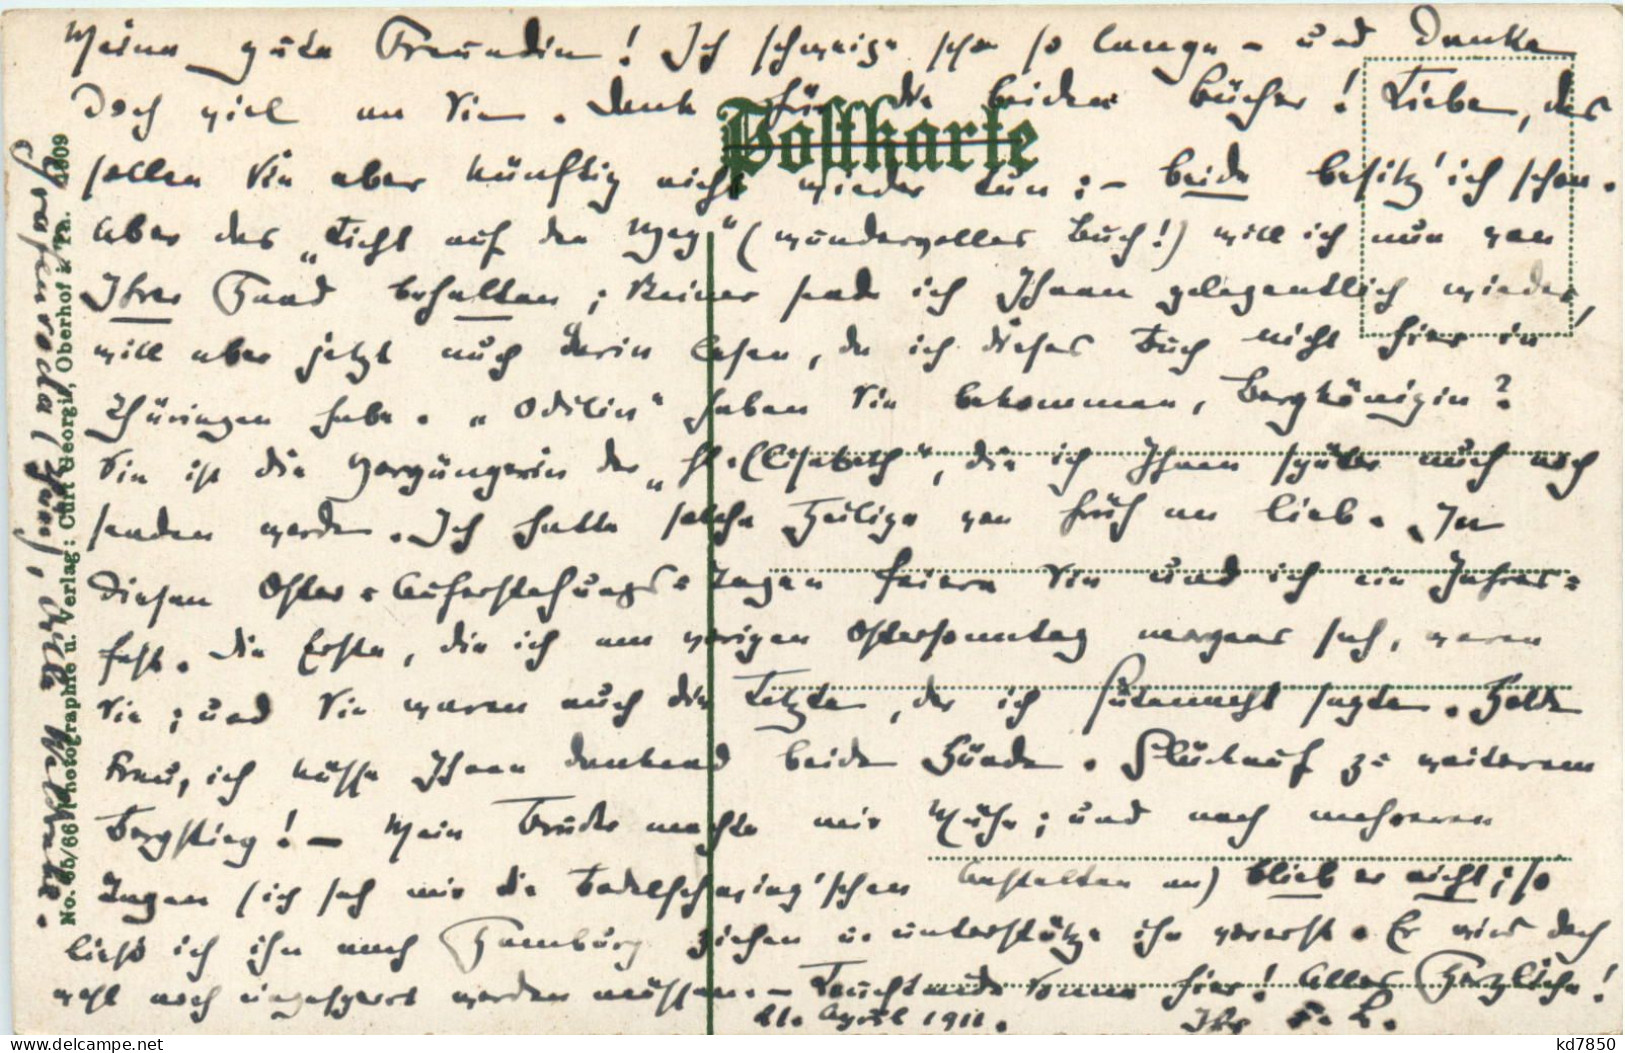 Meine gute Freundin! Ich schweige schon so lange – und danke
doch viel an Sie. Dank für die beiden Bücher! Liebe, das
Postkarte
sollen Sie aber künftig nicht wieder tun; – beide besitz' ich schon.
Aber das „Licht auf den Weg" (wundervolles Buch!) will ich nun von
Ihrer Hand behalten; Meines sende ich Ihnen gelegentlich wieder,
will aber jetzt auch darin lesen, da ich dieses Buch nicht hier in
Thüringen habe. „Odilie" haben Sie bekommen, Bergkönigin?
Sie ist die Vorgängerin der „Hl. Elisabeth", die ich Ihnen später auch noch
senden werde. Ich hatte solche Heilige von früh an lieb. In
diesen Oster-Auferstehungs-Tagen feiern Sie und ich ein Jahres-
fest. Die Erste, die ich am vorigen Ostersonntag morgens sah, waren
Sie; und Sie waren auch die Letzte, der ich Gutenacht sagte. Holde
Frau, ich küsse Ihnen dankend beide Hände. Glückauf zu weiterem
Bergstieg! – Mein Bruder machte mir Mühe; und nach mehreren
Tagen (ich sah mir die Bodelschwing'schen Anstalten an) blieb er nicht; so
ließ ich ihn nach Hamburg ziehen u. unterstütze ihn vorerst. Er wird doch
wohl noch eingesperrt werden müssen. – Leuchtende Sonne hier! Alles Herzliche!
21. April 1911. Ihr F. L.
Grafenroda (Thür), Villa
No. 65/66 Photographie u. Verlag: Curt Georgi, Oberhof i. Th. 1909
kd7850